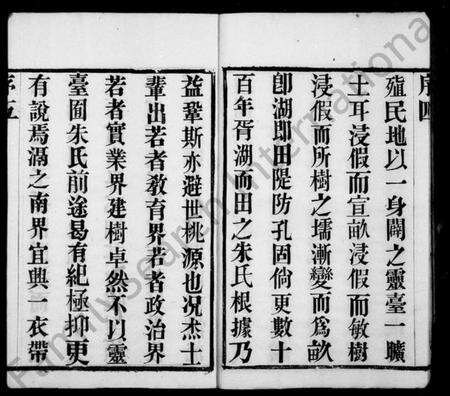 序四
殖民地以一身闢之靈臺一曠
土耳浸假而宣畝浸假而敏樹
浸假而所樹之壖漸變而爲畝
卽湖即田隄防孔固倘更數十
百年胥湖而田之朱氏根據乃
益鞏斯亦避世桃源也况杰士
輩出若者敎育界若者政治界
若者實業界建樹卓然不以靈
臺囿朱氏前途曷有紀極抑更
有說焉滆之南界宜興一衣帶
序五
FamilySearch International